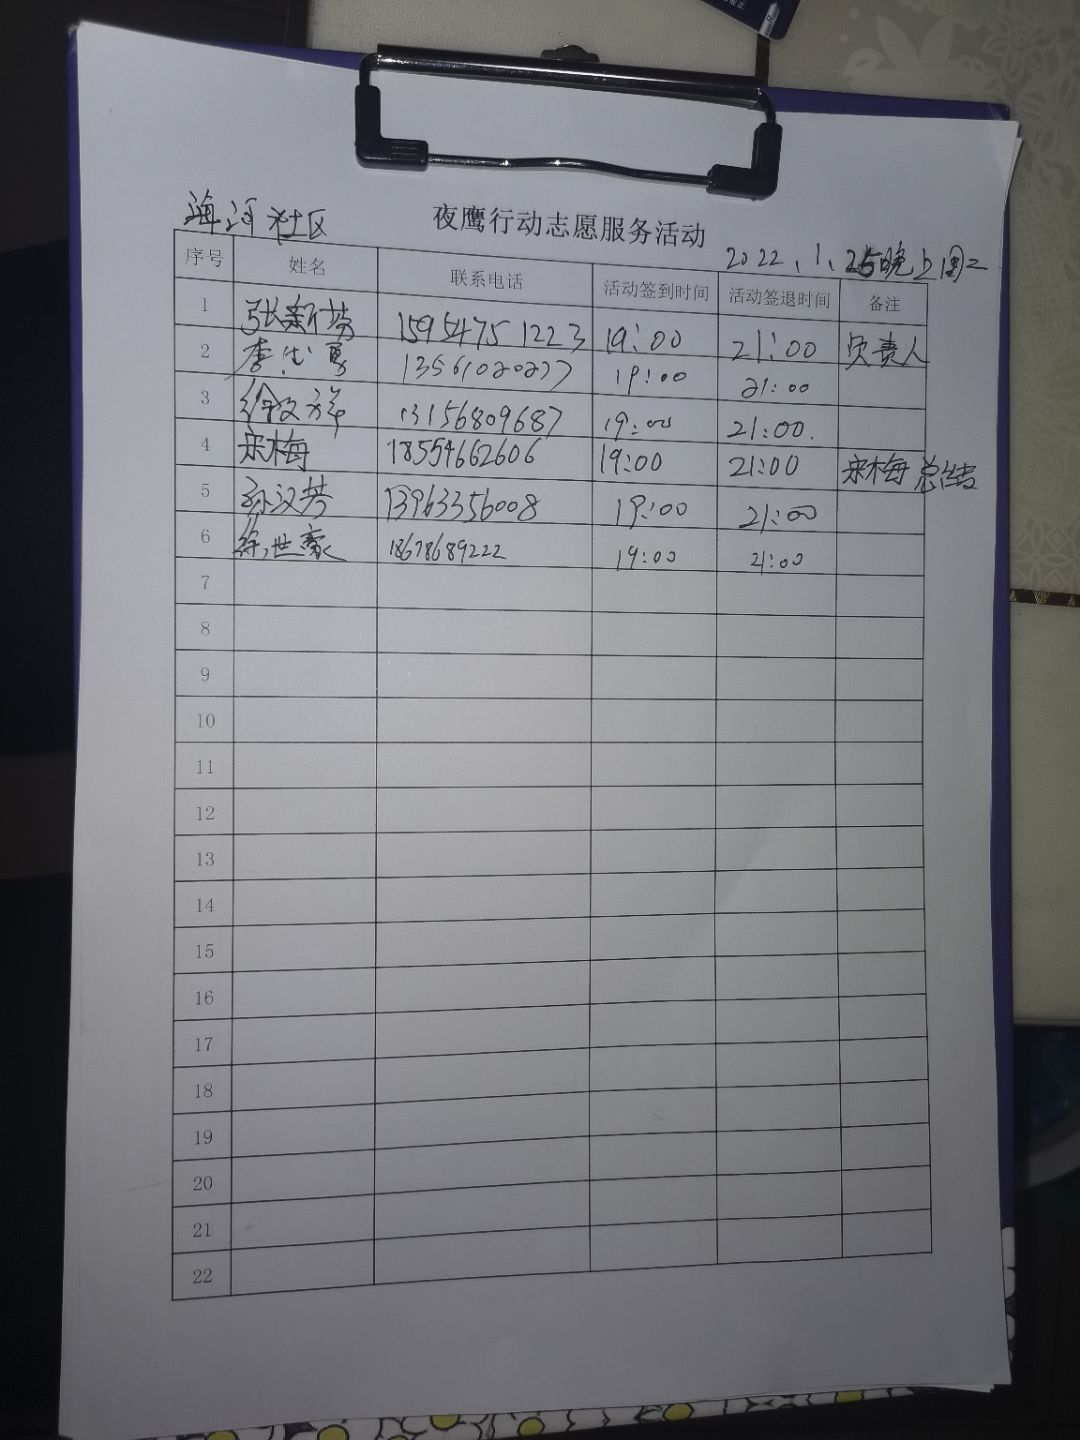 海河社区 夜鹰行动志愿服务活动
2022、1、25晚上周二
序号 姓名 联系电话 活动签到时间 活动签退时间 备注
1 张新芳 15954751223 19:00 21:00 负责人
2 李 勇 13561020277 19:00 21:00
3 徐 祥 13156809687 19:00 21:00.
4 宋梅 18554662606 19:00 21:00 宋梅总结
5 孙汉芳 13963356008 19:00 21:00
6 徐世豪 18678689222 19:00 21:00
7
8
9
10
11
12
13
14
15
16
17
18
19
20
21
22